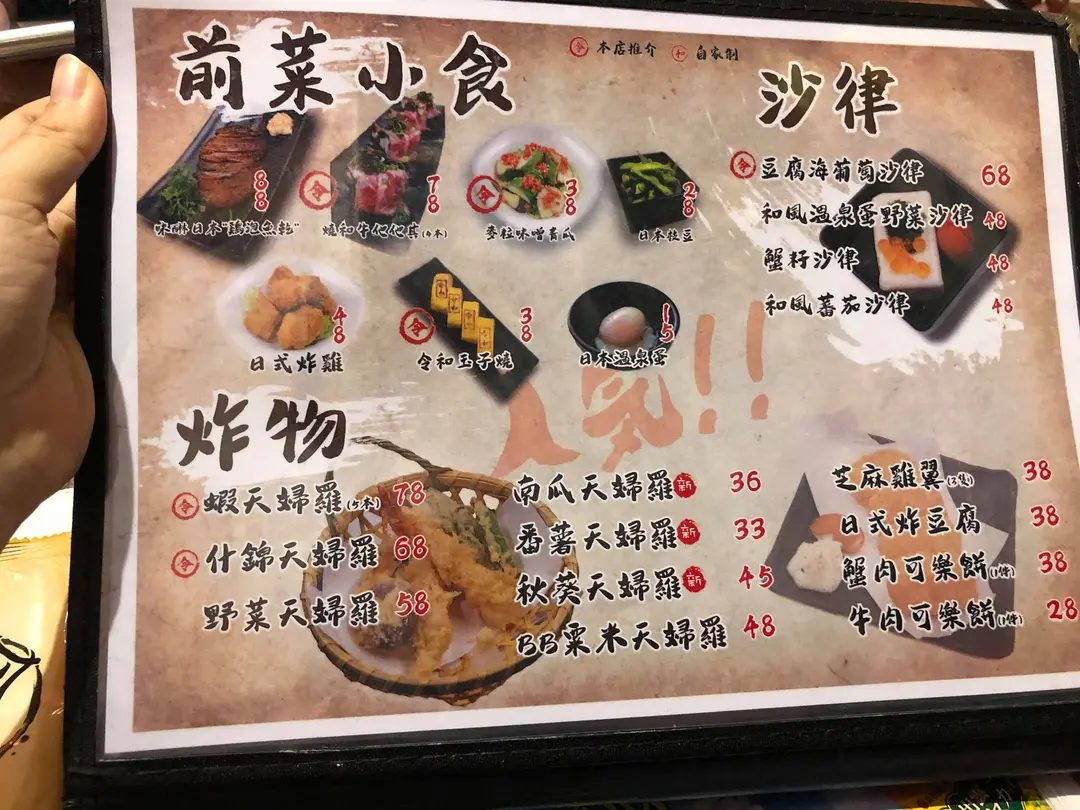 前菜小食
令 本店推介 和 自家制
88
令 78
令 38
28
味醂日本"鷄泡魚乾"
燒和牛伀伀真(4本)
麥粒味噌青瓜
日本枝豆
48
令 38
15
日式炸雞
令和玉子燒
日本溫泉蛋
沙律
令 豆腐海葡萄沙律 68
和風溫泉蛋野菜沙律 48
蟹籽沙律 48
和風蕃茄沙律 48
人気!!
炸物
令 蝦天婦羅(5本) 78
令 什錦天婦羅 68
野菜天婦羅 58
南瓜天婦羅 新 36
番薯天婦羅 新 33
秋葵天婦羅 新 45
BB粟米天婦羅 48
芝麻雞翼(3隻) 38
日式炸豆腐 38
蟹肉可樂餅(1件) 38
牛肉可樂餅(1件) 28